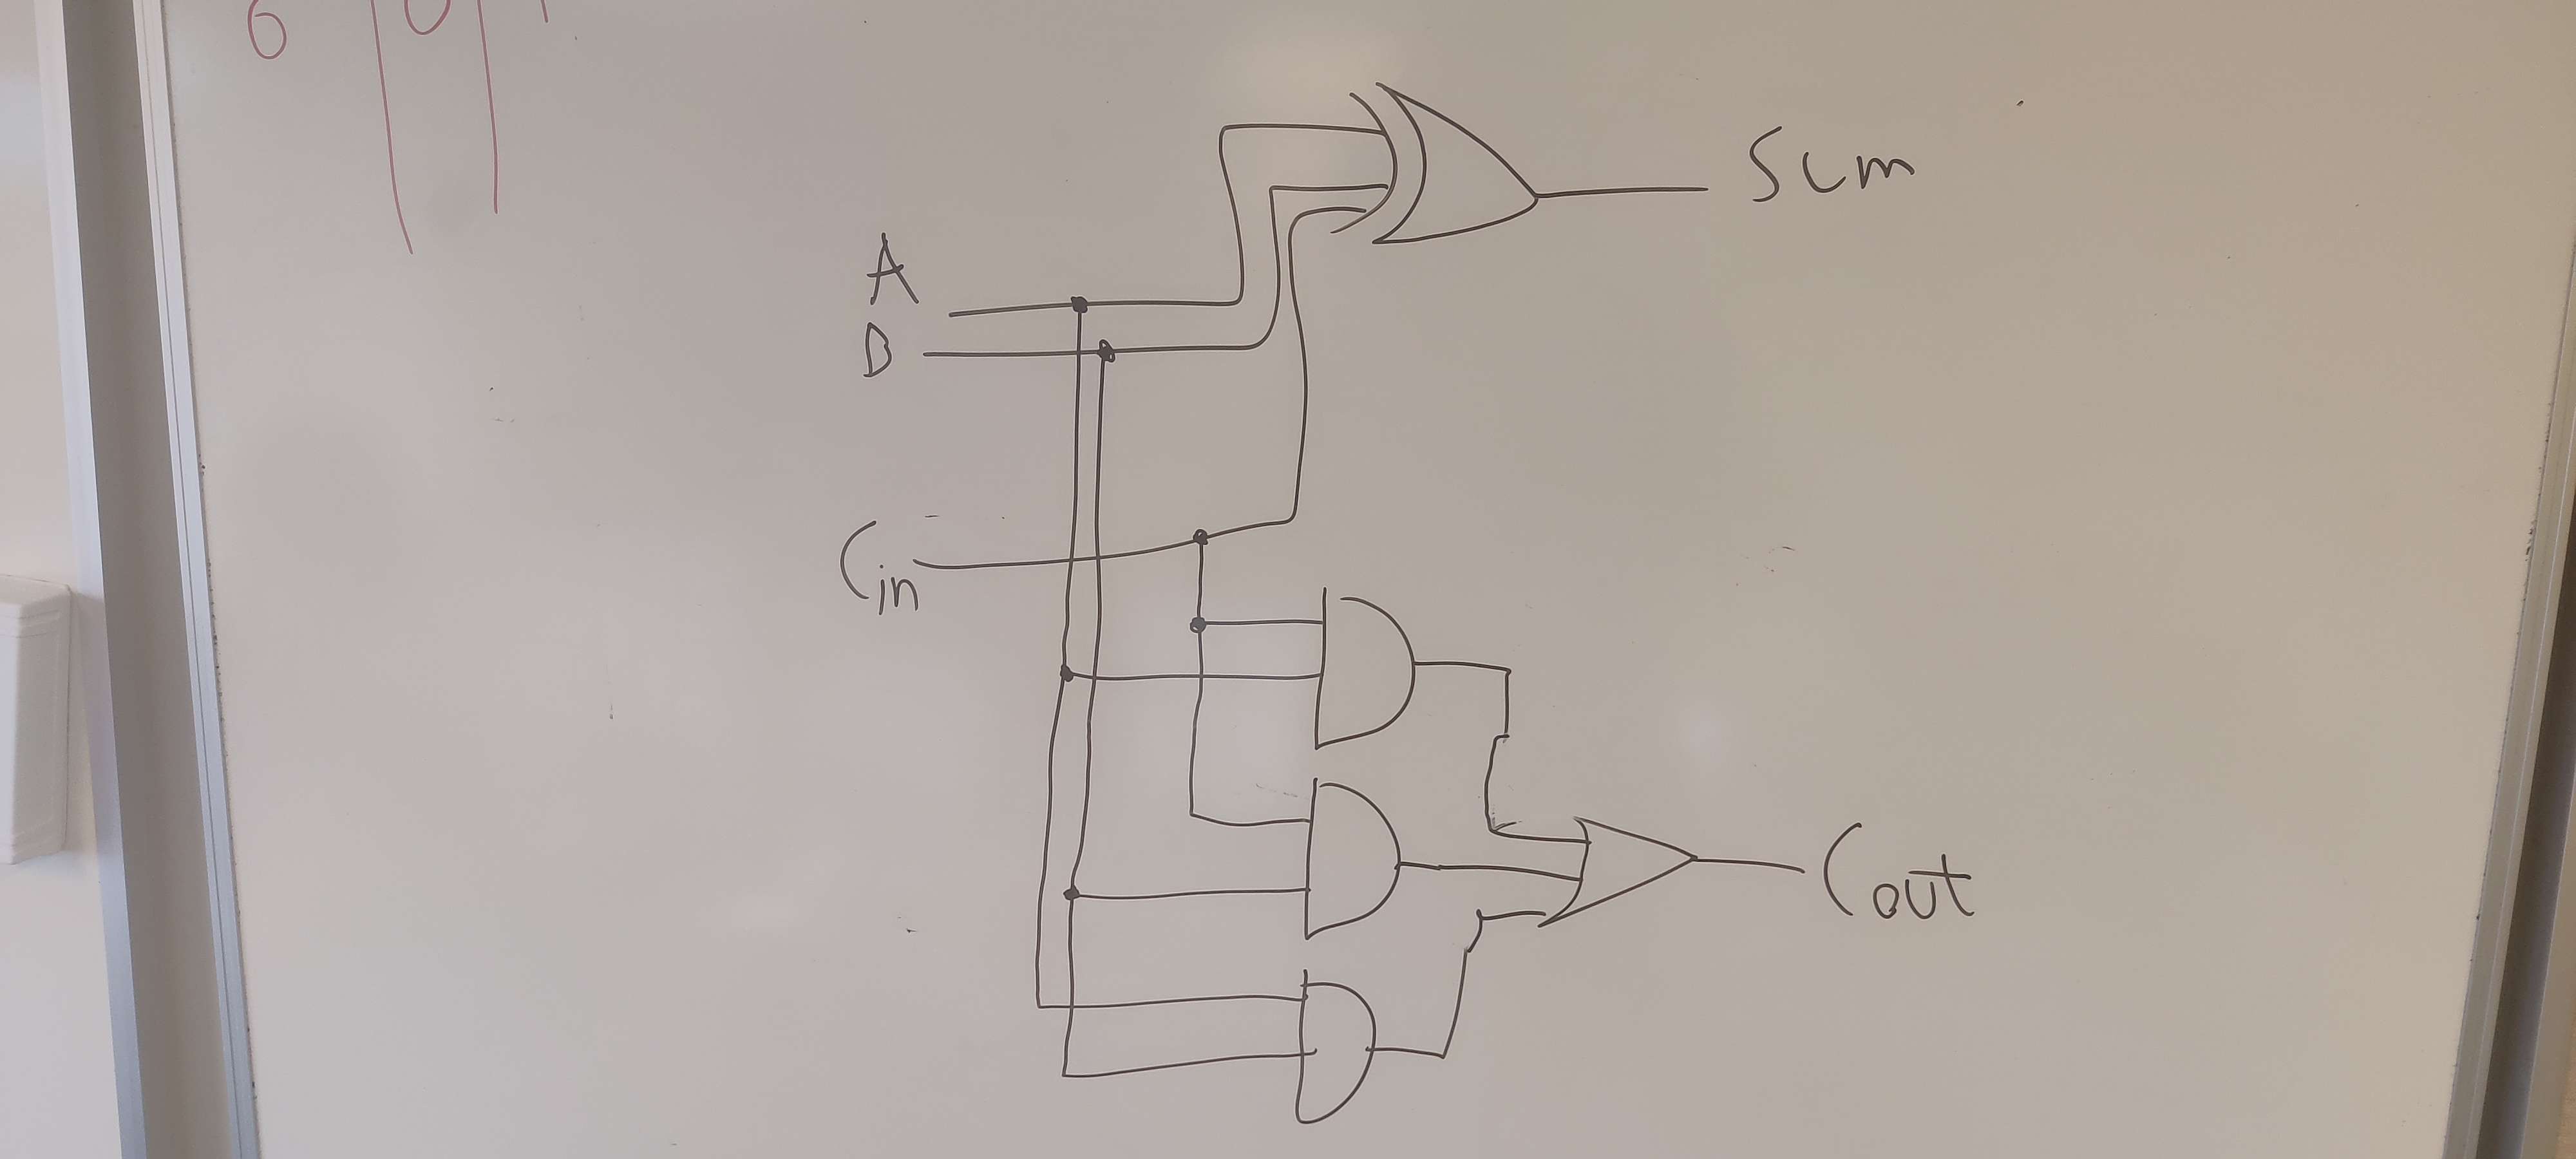 6 | 0 |
Sum
A
B
Cin
Cout